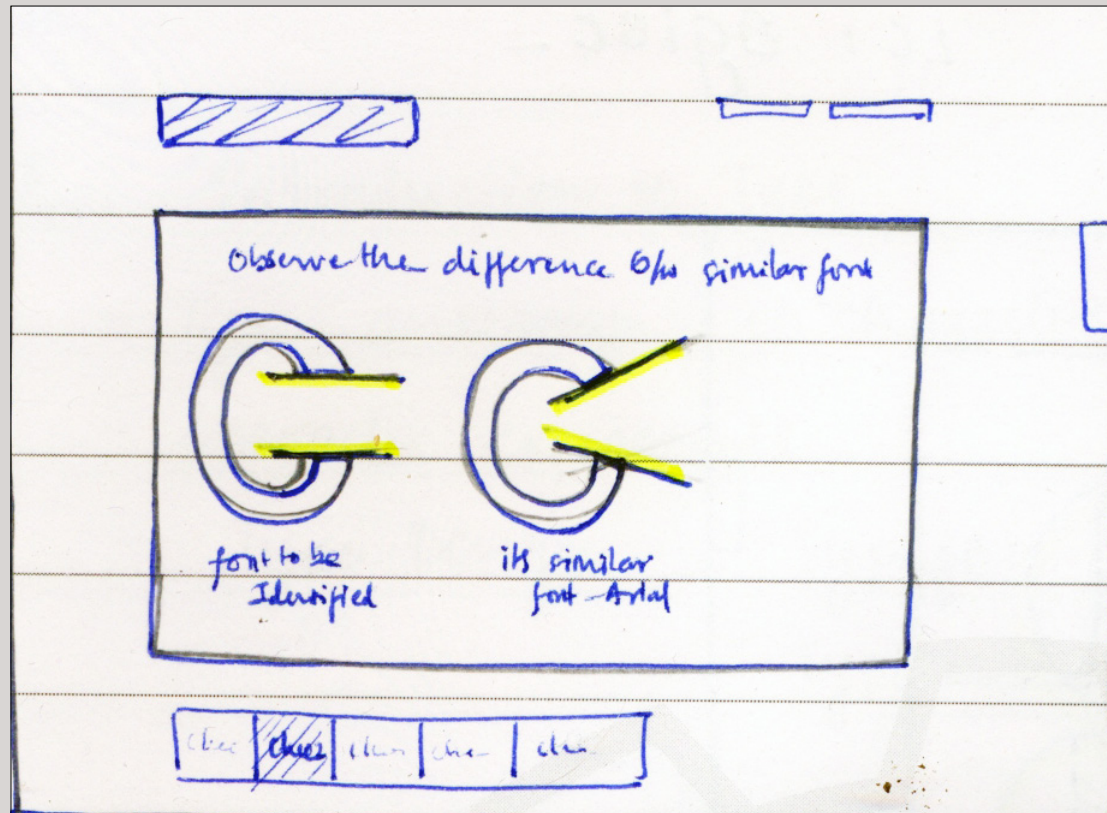 Observe the difference b/w similar font
font to be
Identified
its similar
font - Arial
clue
clue2
clue
clue
clue